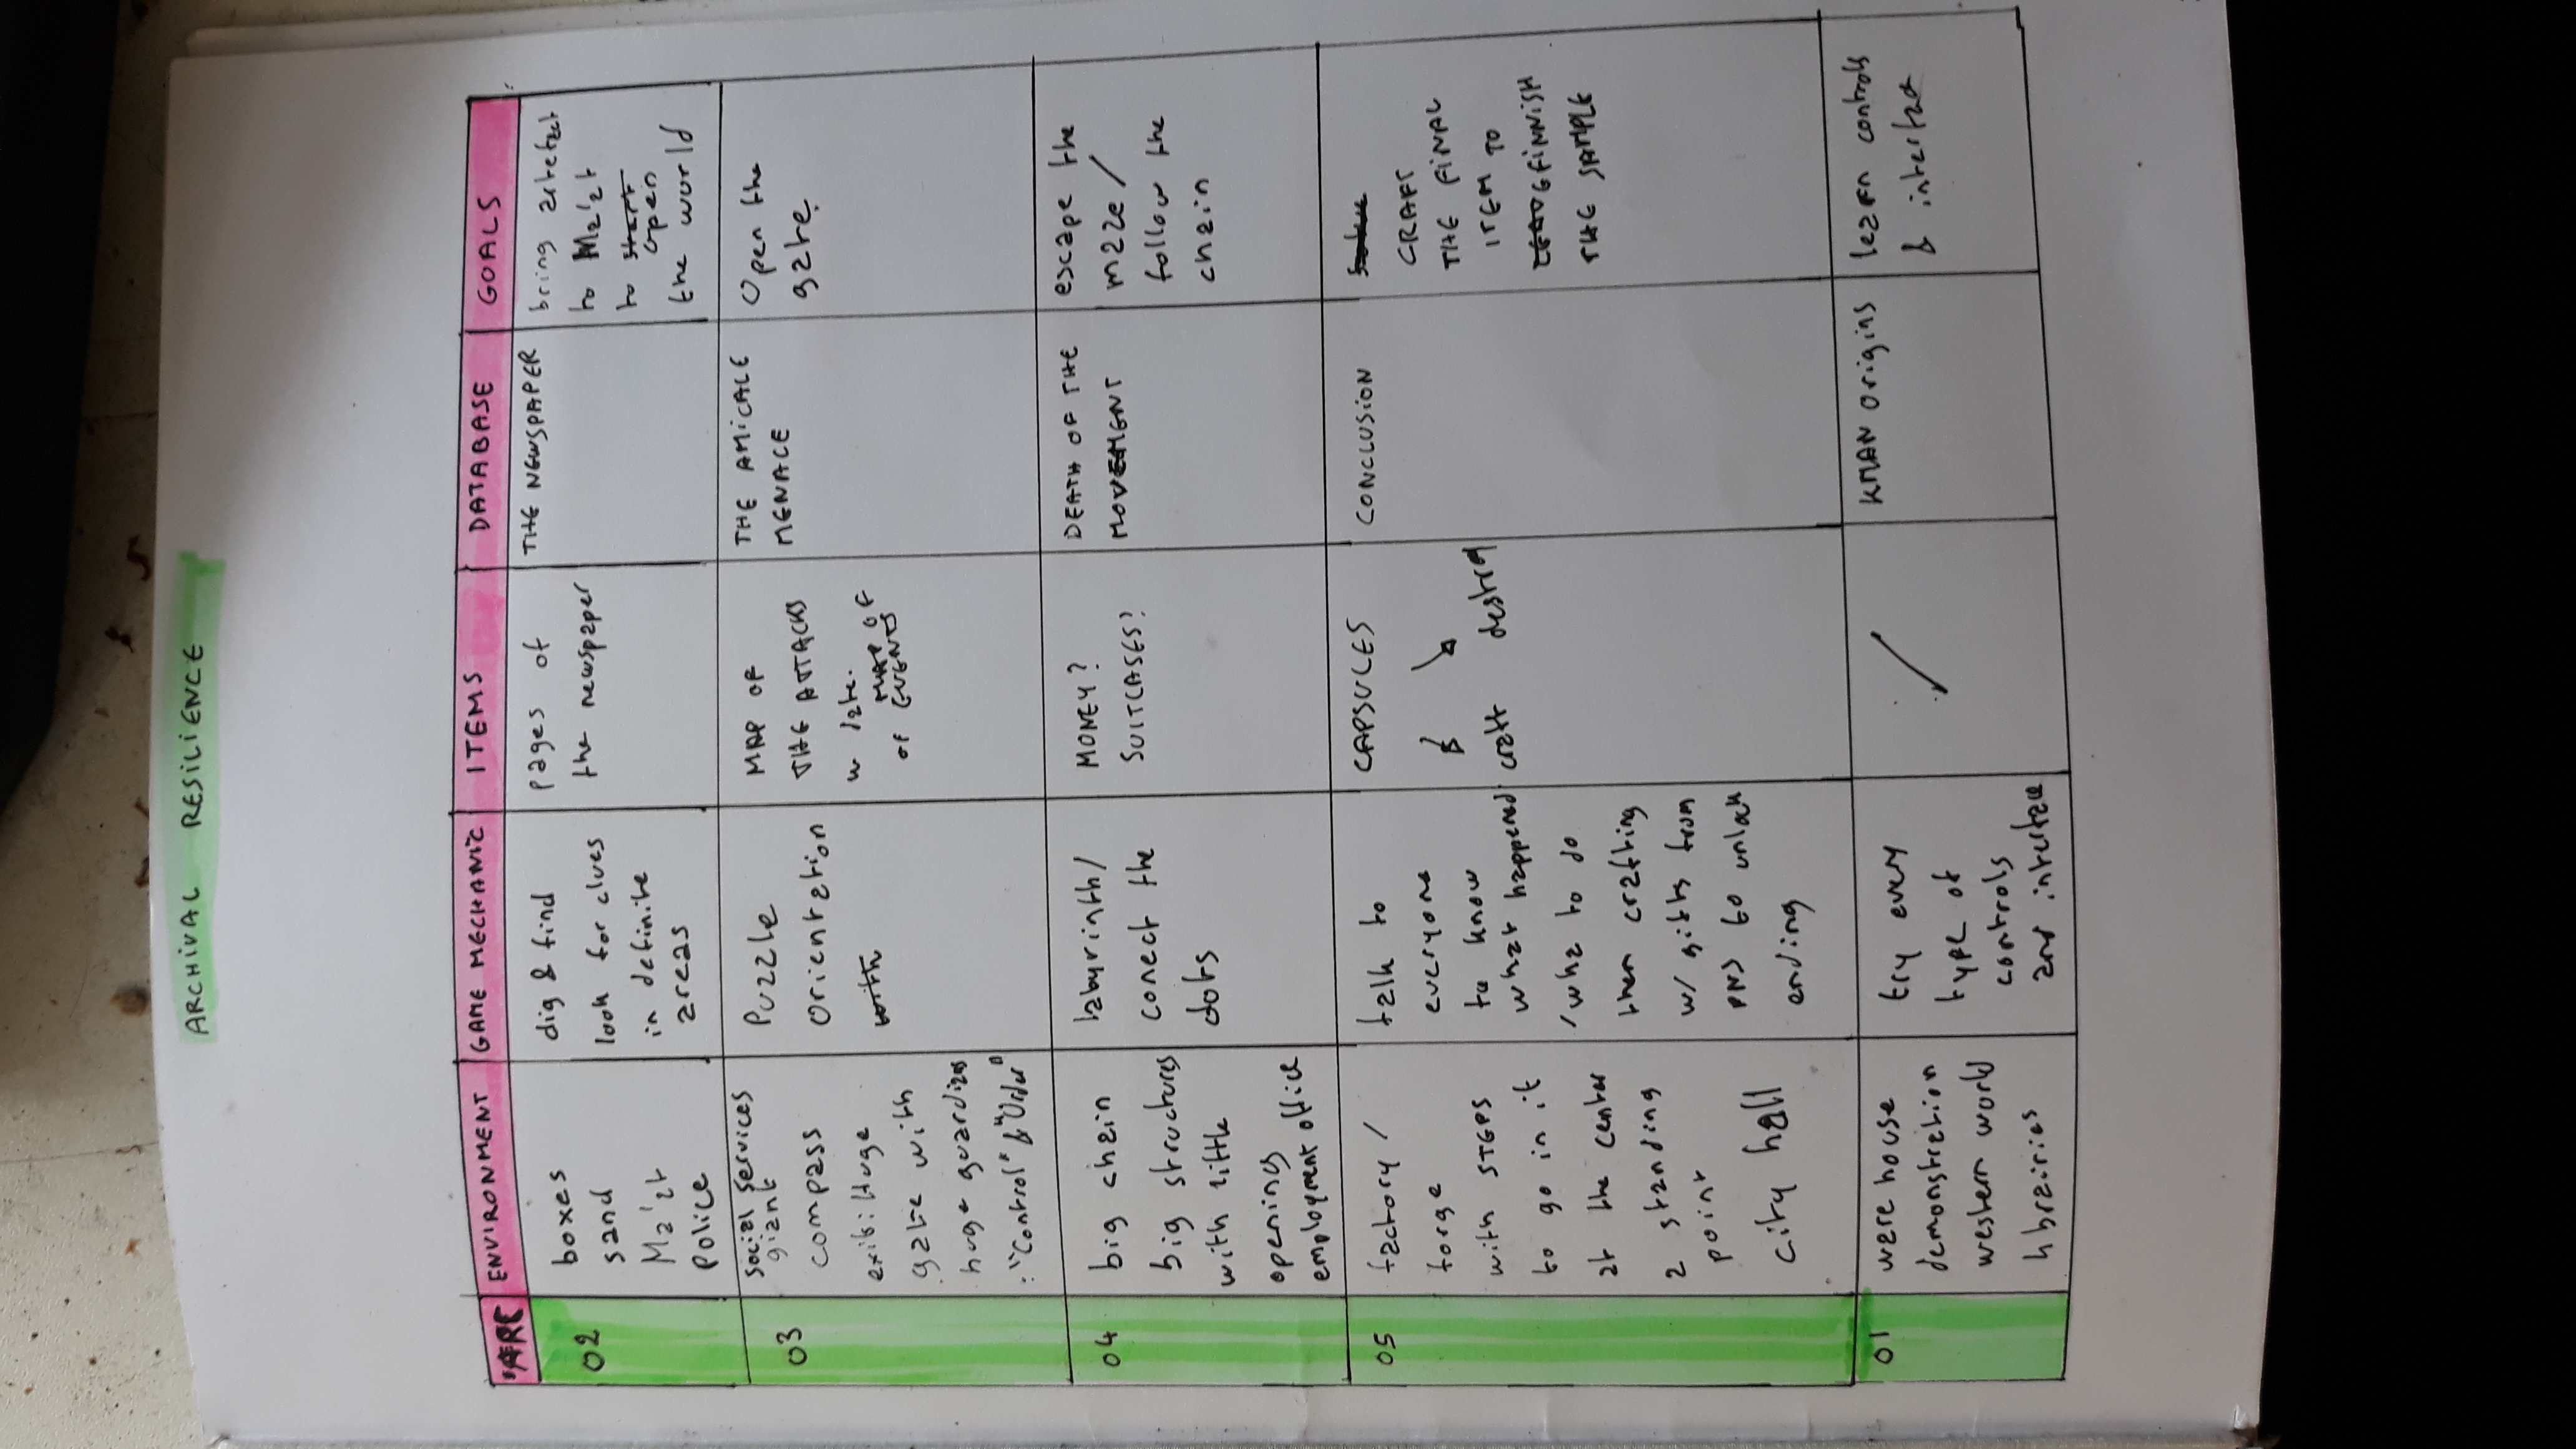 ARCHIVAL RESILIENCE
ARC
ENVIRONMENT
GAME MECHANIC
ITEMS
DATABASE
GOALS
02
boxes
sand
Ma'at
Police
dig & find
look for clues
in definite
areas
pages of
the newspaper
THE NEWSPAPER
bring artefact
to Ma'at
to start
open
the world
03
social services
giant
compass
exit: Huge
gate with
huge guardians
: "Control" & "Order"
Puzzle
orientation
with
MAP OF
THE ATTACKS
w date.
MAP OF
OF EVENTS
THE AMICALE
MENACE
Open the
gate
04
big chain
big structures
with little
openings
employment office
labyrinth/
conect the
dots
MONEY?
SUITCASES?
DEATH OF THE
MOVEMENT
escape the
maze /
follow the
chain
05
factory /
forge
with STEPS
to go in it
at the center
a standing
point
city hall
talk to
everyone
to know
what happened
/wha to do
then crafting
w/ gifts from
PNJ to unlock
ending
CAPSULES
craft destroy
CONCLUSION
CRAFT
THE FINAL
ITEM TO
FINNISH
THE SAMPLE
01
ware house
demonstration
western world
librairies
try every
type of
controls
and interface
KMAN origins
learn controls
& interface